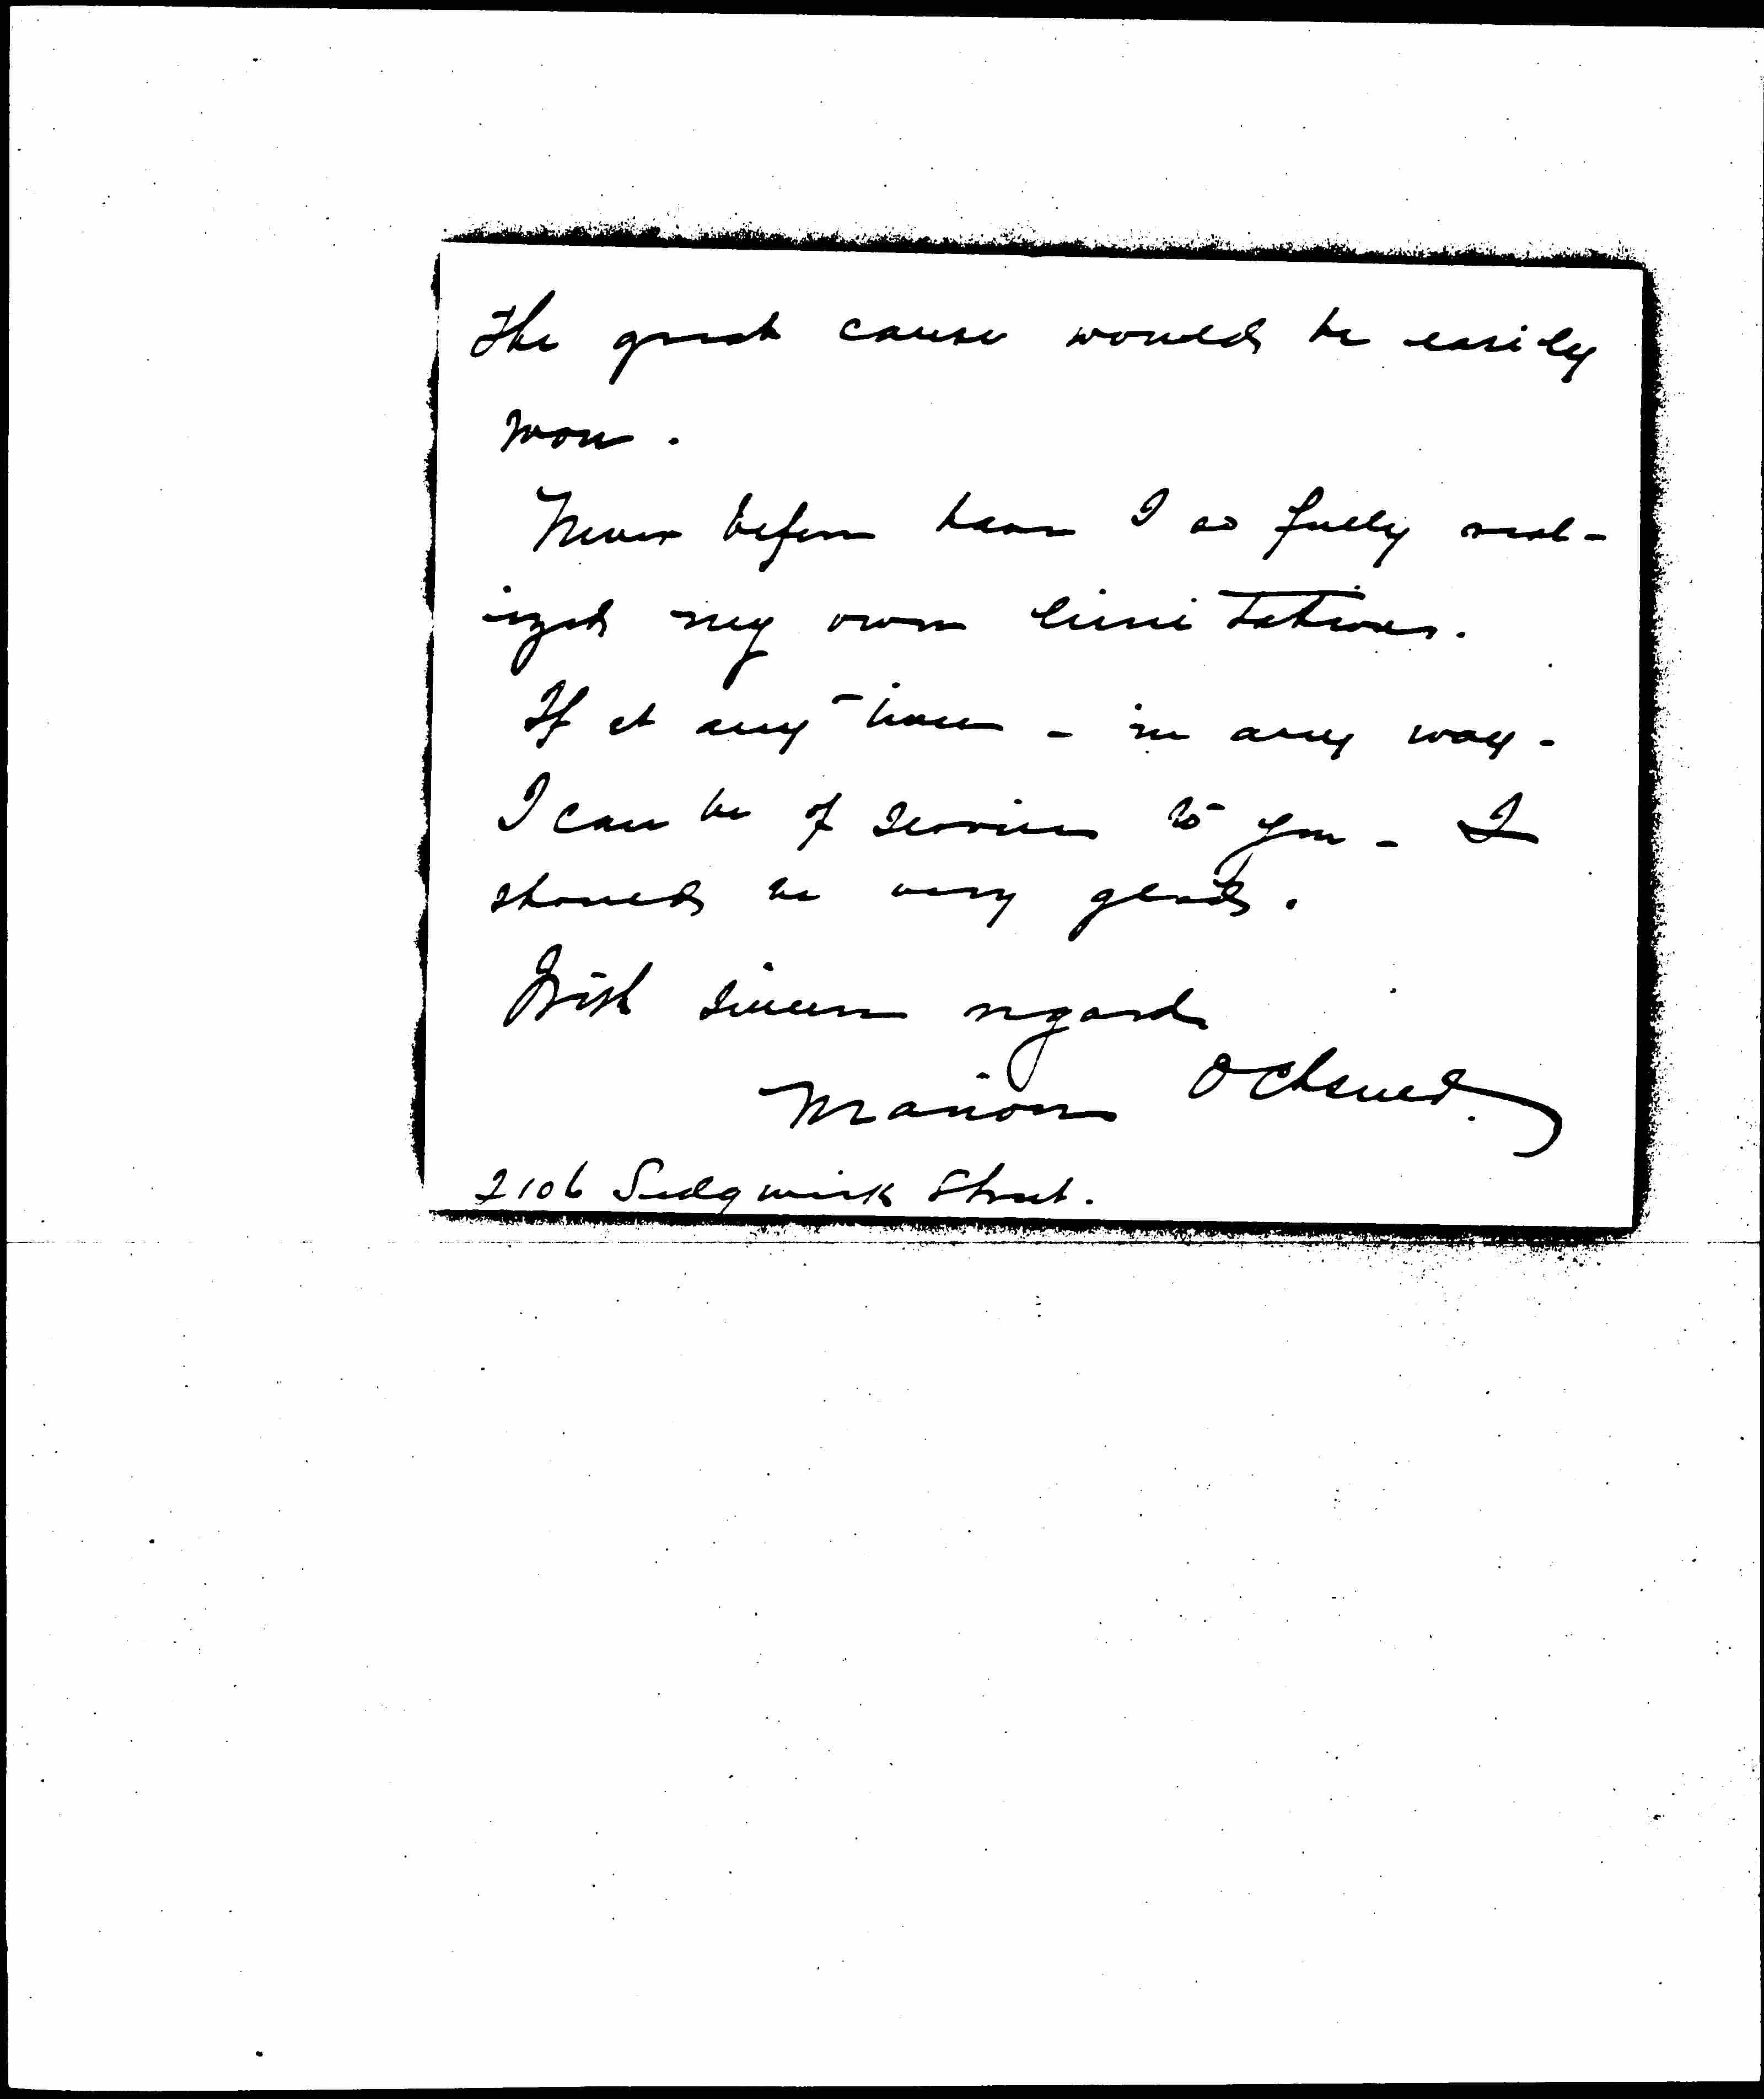 the great cause would be easily
won.
Never before have I so fully real-
ized my own limitations.
If at any time - in any way -
I can be of service to you - I
should be very glad.
With sincere regards
Marion Ochsner.
2106 Sedgwick Street.